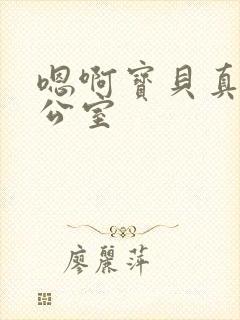 嗯啊寶貝真
公室
廖麗萍